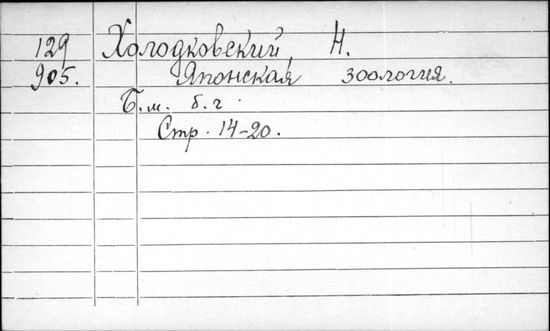 129 Холодковский, Н.
905. Японская зоология.
Б.м. б.г.
Стр. 14-20.